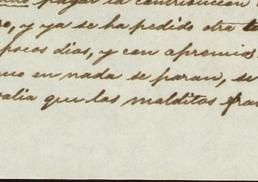 pagar la contribucion
, y ya se ha pedido otra
pocos dias, y con apremios
en nada se paran, se
que los malditos